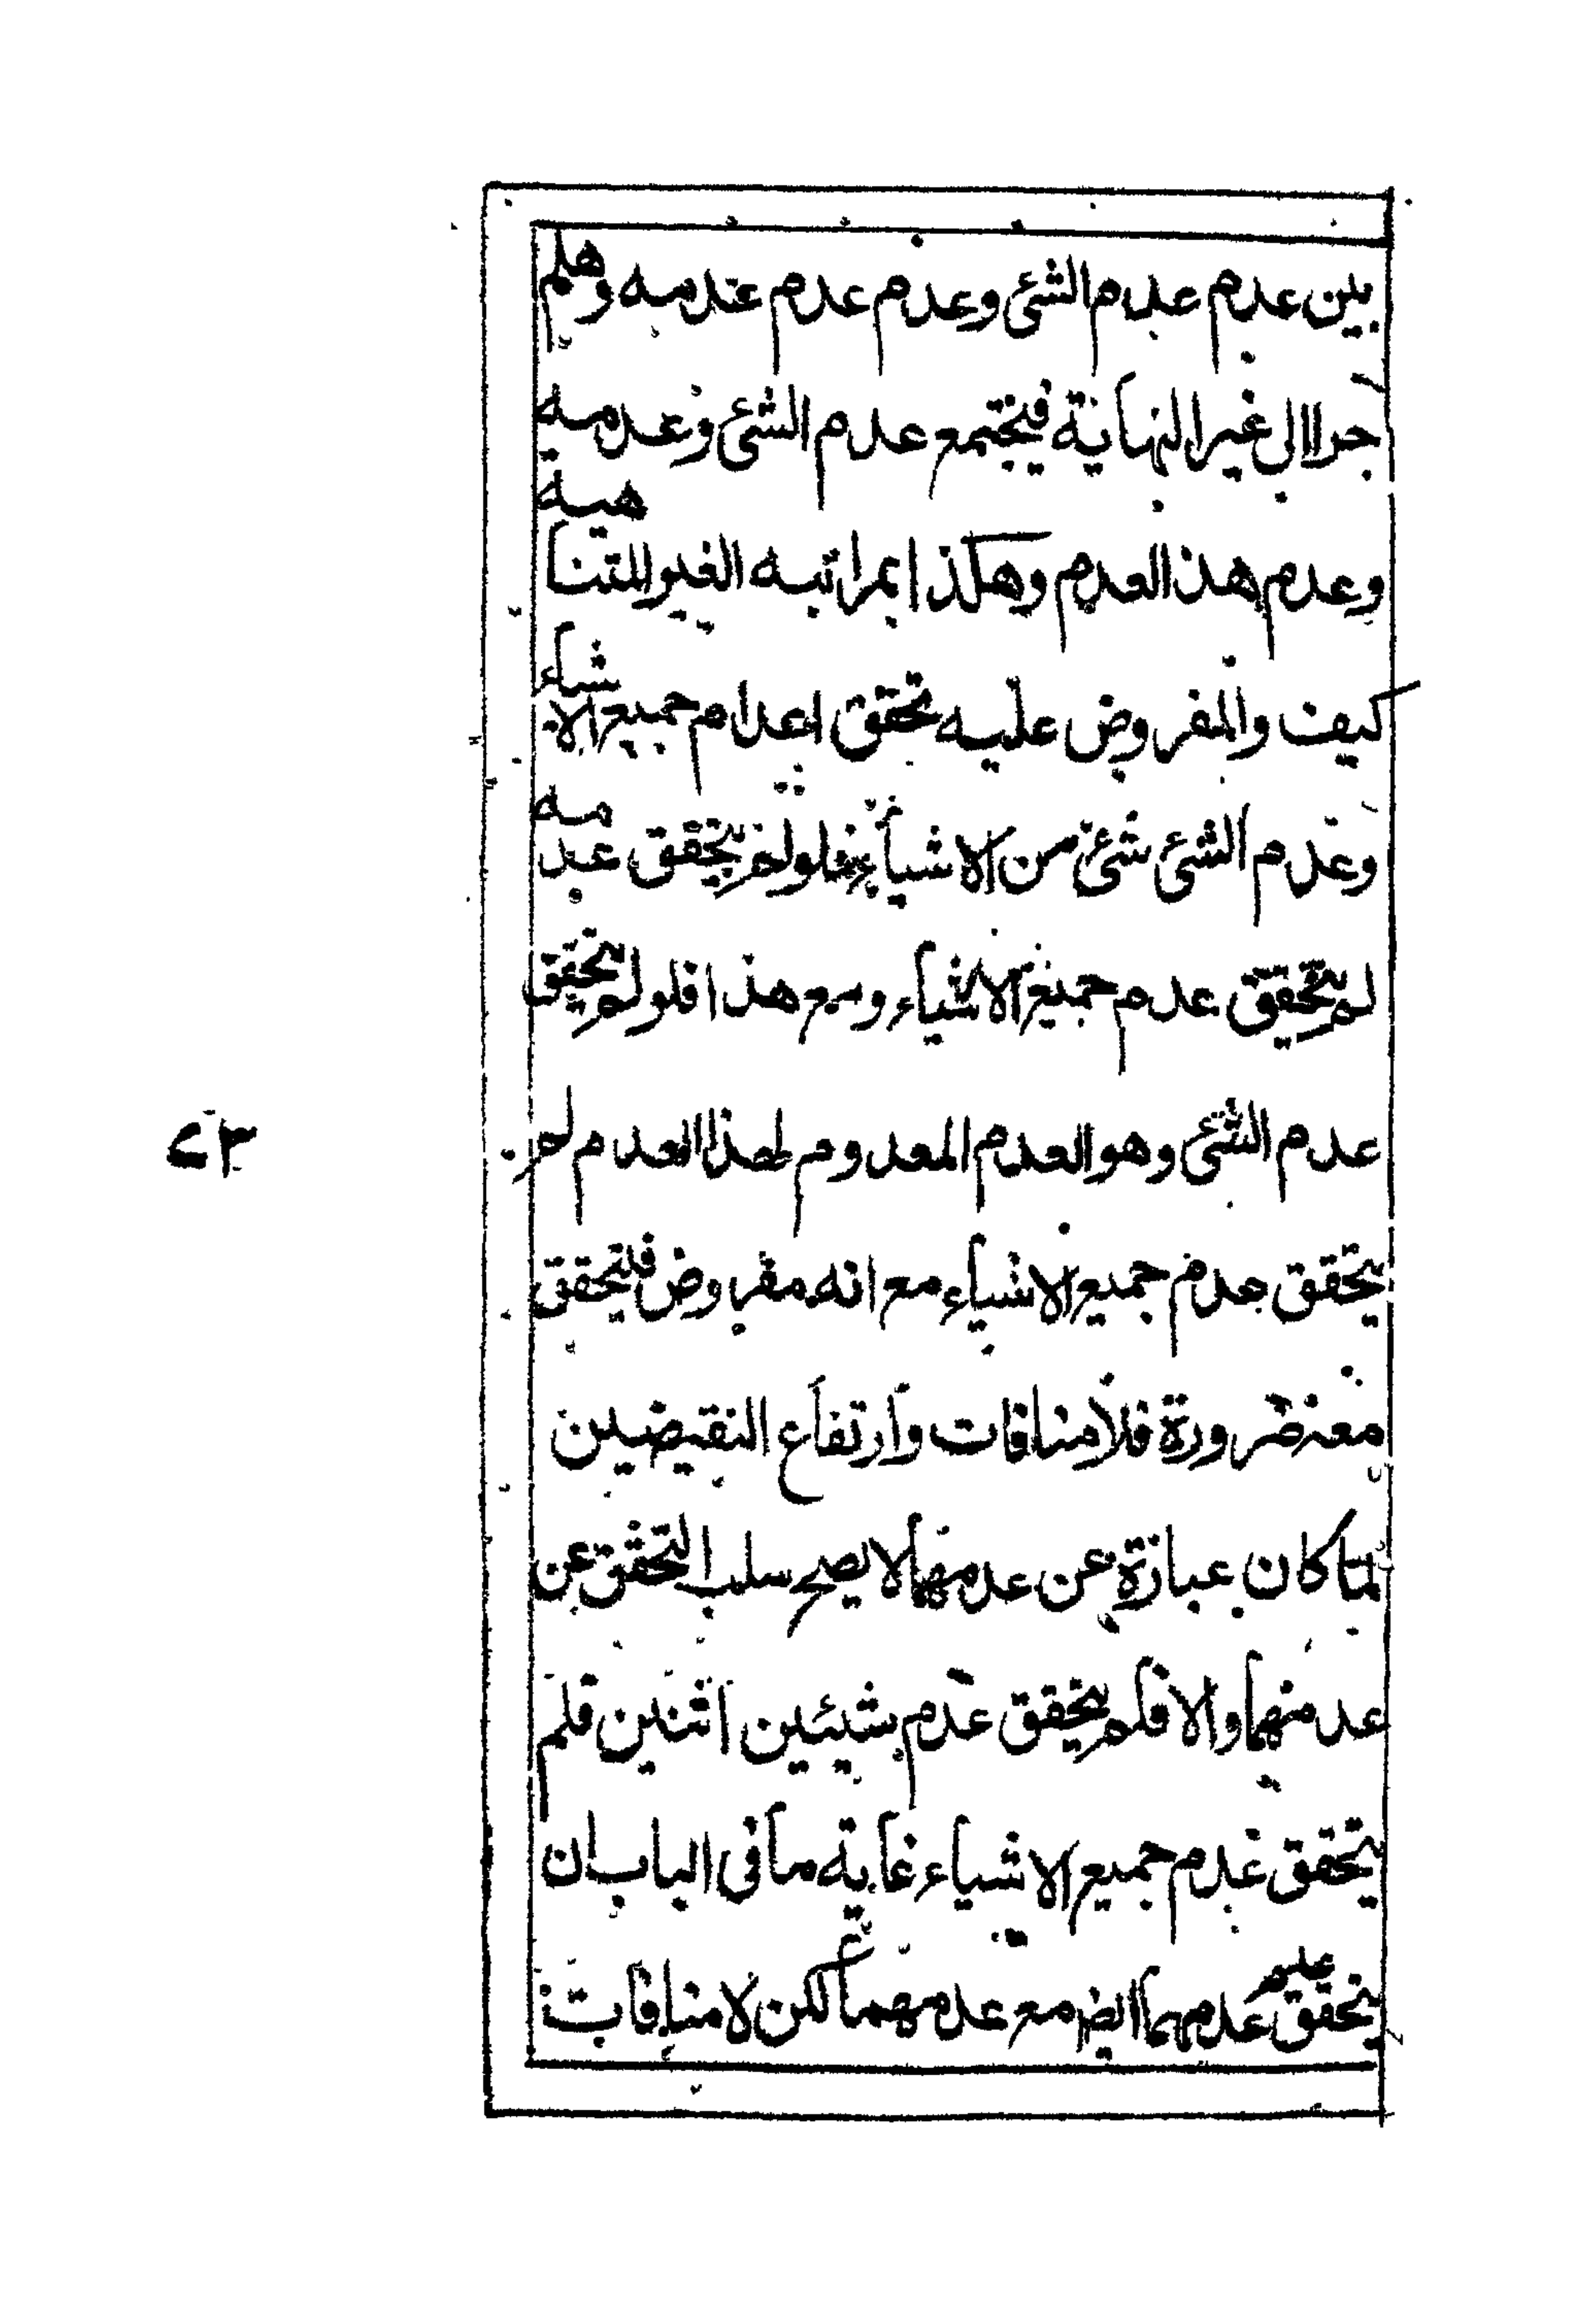 بين عدم عدم الشئ وعدم عدم عدمه وهلم
جرا الى غير النهاية فيجتمع عدم الشئ وعدمه
وعدم هذا العدم وهكذا بمراتبه الغير المتناهية
كيف والمفروض عليه تحقق اعدام جميع الاشياء
وعدم الشئ شئ من الاشياء فلو لم يتحقق عدمه
لم يتحقق عدم جميع الاشياء ومع هذا فلو لم يتحقق
عدم الشئ وهو العدم المعدوم لهذا العدم لم
يتحقق عدم جميع الاشياء مع انه مفروض فليتحقق
معه ضرورة فلا منافات وارتفاع النقيضين
لما كان عبارة عن عدمهما لا يصح سلب التحقق عن
عدمهما والا فلم يتحقق عدم شيئين اثنين فلم
يتحقق عدم جميع الاشياء غاية ما فى الباب ان
يتحقق عدم عدمهما ايض مع عدمهما لكن لا منافات